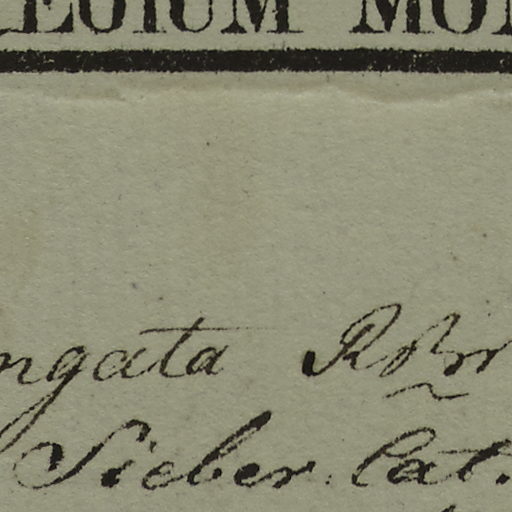 EGIUM MO
ngata RBr
Sieber. Cat.